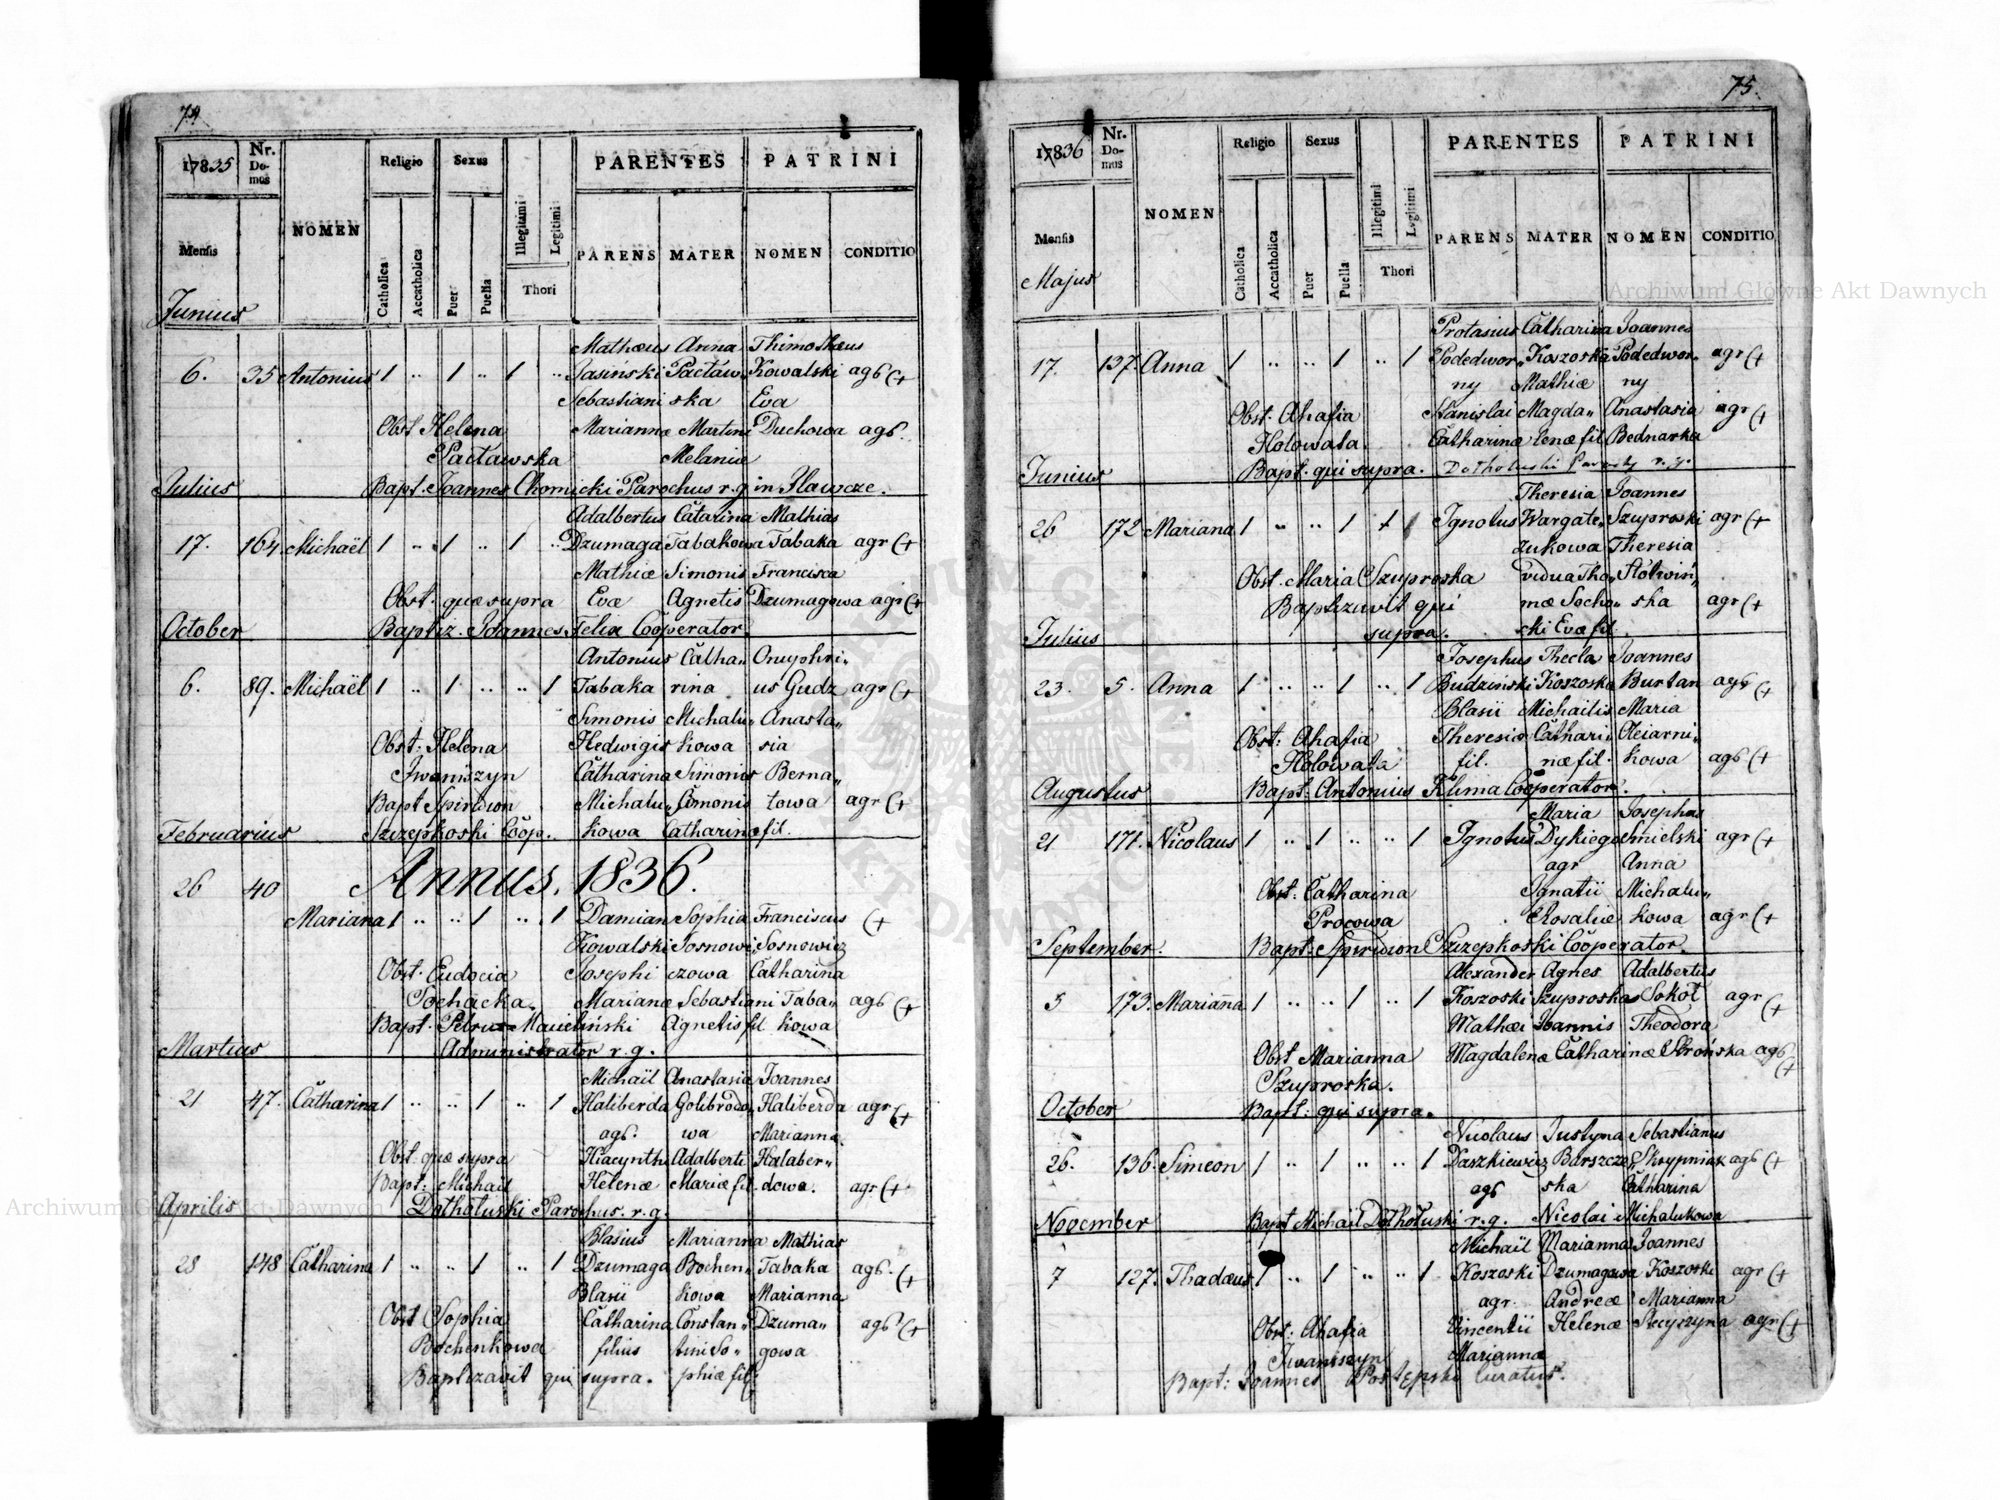 74.
17835 Nr. Domus NOMEN Religio Sexus PARENTES PATRINI
Mensis Catholica Accatholica Puer Puella Illegitimi Legitimi Thori PARENS MATER NOMEN CONDITIO
Junius
Mathæus Anna Thimothæus
6. 35 Antonius 1 .. 1 .. 1 .. Sasiński Pacław Kowalski agr (+
Sebastiani ska Eva
Obst. Helena Mariannæ Martini Duchowa agr.
Pacławska Melaniæ
Julius Bapt. Joannes Chomicki Parochus r. g. in Hawcze.
Adalbertus Catarina Mathias
17. 164. Michaël 1 .. 1 .. 1 .. Dzumaga Tabakowa Tabaka agr (+
Mathiæ Simonis Francisca
Obst. quæ supra Evæ Agnetis Dzumagowa agr (+
October Baptiz. Joannes Felix Cooperator.
Antonius Catha„ Onuphri„
6. 89. Michaël 1 .. 1 .. .. 1 Tabaka rina us Gudz agr (+
Simonis Michalu„ Anasta„
Obst: Helena Hedwigis kowa sia
Iwaniszyn Catharina Simonis Berna„
Bapt Spiridion Michalu„ Simonis towa agr (+
Februarius Szczepkoski Coop. kowa Catharinæ fil.
26 40 Annus. 1836.
Mariana 1 .. .. 1 .. 1 Damian Sophia Franciscus (+
Kowalski Sosnowi Sosnowicz
Obst. Eudocia Josephi czowa Catharina
Sochacka. Marianæ Sebastiani Taba„ agr (+
Bapt. Petrus Macieliński Agnetis fil kowa
Martius Administrator r. g.
Michaïl Anastasia Joannes
21 47. Catharina 1 .. .. 1 .. 1 Haliberda Golibrodo„ Haliberda agr (+
agr. wa Marianna
Obst. quæ supra Hiacynthi Adalberti Halaber„
Bapt: Michail Helenæ Mariæ fil. dowa. agr (+
Aprilis Dołhołuski Parochus. r. g.
Blasius Marianna Mathias
28 148 Catharina 1 .. .. 1 .. 1 Dzumaga Bochen„ Tabaka agr. (+
Blasii kowa Marianna
Obst Sophia Catharina Constan„ Dzuma„ agr (+
Bochenkowa filius tini So„ gowa
Baptizavit qui supra. phiæ fil.
75.
17836 Nr. Domus NOMEN Religio Sexus PARENTES PATRINI
Mensis Catholica Accatholica Puer Puella Illegitimi Legitimi Thori PARENS MATER NOMEN CONDITIO
Majus
Protasius Catharina Joannes
17. 137. Anna 1 .. .. 1 .. 1 Podedwor„ Koszoska Podedwor„ agr (+
ny Mathiæ ny
Obst. Ahafia Stanislai Magda„ Anastasia agr (+
Holowata. Catharinæ lenæ fil Bednarka
Junius Bapt. qui supra. Dołhołuski Paroch r. g.
Theresia Joannes
26 172 Mariana 1 .. .. 1 + 1 Ignotus Wargate„ Szuproski agr (+
zukowa Theresia
Obst. Maria Szuproska vidua Tho„ Stotwiń„
Baptizavit qui mæ Socho„ ska agr (+
Julius supra. ski Evæ fil.
Josephus Thecla Joannes
23. 5. Anna 1 .. .. 1 .. 1 Budziński Koszoska Burtan agr (+
Blasii Michailis Maria
Obst: Ahafia Theresiæ Cathari Kleiarni„
Holowata fil. næ fil. kowa agr (+
Augustus Bapt: Antonius Klima Cooperator.
Maria Josephus
21 171. Nicolaus 1 .. 1 .. .. 1 Ignotus Dykiego Smielski agr (+
agr Anna
Obst. Catharina Ignatii Michalu„
Procowa Rosaliæ kowa agr (+
September. Bapt: Spiridion Szczepkoski Cooperator.
Alexander Agnes Adalbertus
5 173. Marianna 1 .. .. 1 .. 1 Koszoski Szuproska Sokoł agr (+
Mathæi Joannis Theodora
Obst Marianna Magdalenæ Catharinæ Skrońska agr (+
Szuproska.
October Bapt: qui supra.
Nicolaus Justyna Sebastianus
26. 136. Simeon 1 .. 1 .. .. 1 Daszkiewicz Barszcze„ Skrypniak agr (+
agr ska Catharina
November Bapt Michaïl Dołhołuski r. g. Nicolai Michalukowa
Michaïl Marianna Joannes
7 127. Thadæus 1 .. 1 .. .. 1 Koszoski Dzumagowa Koszoski agr (+
agr. Andreæ Marianna
Obst: Ahafia Vincentii Helenæ Stecyszyna agr (+
Iwaniszyn Mariannæ
Bapt: Joannes Postępski Curatus.
Archiwum Główne Akt Dawnych
Archiwum Główne Akt Dawnych